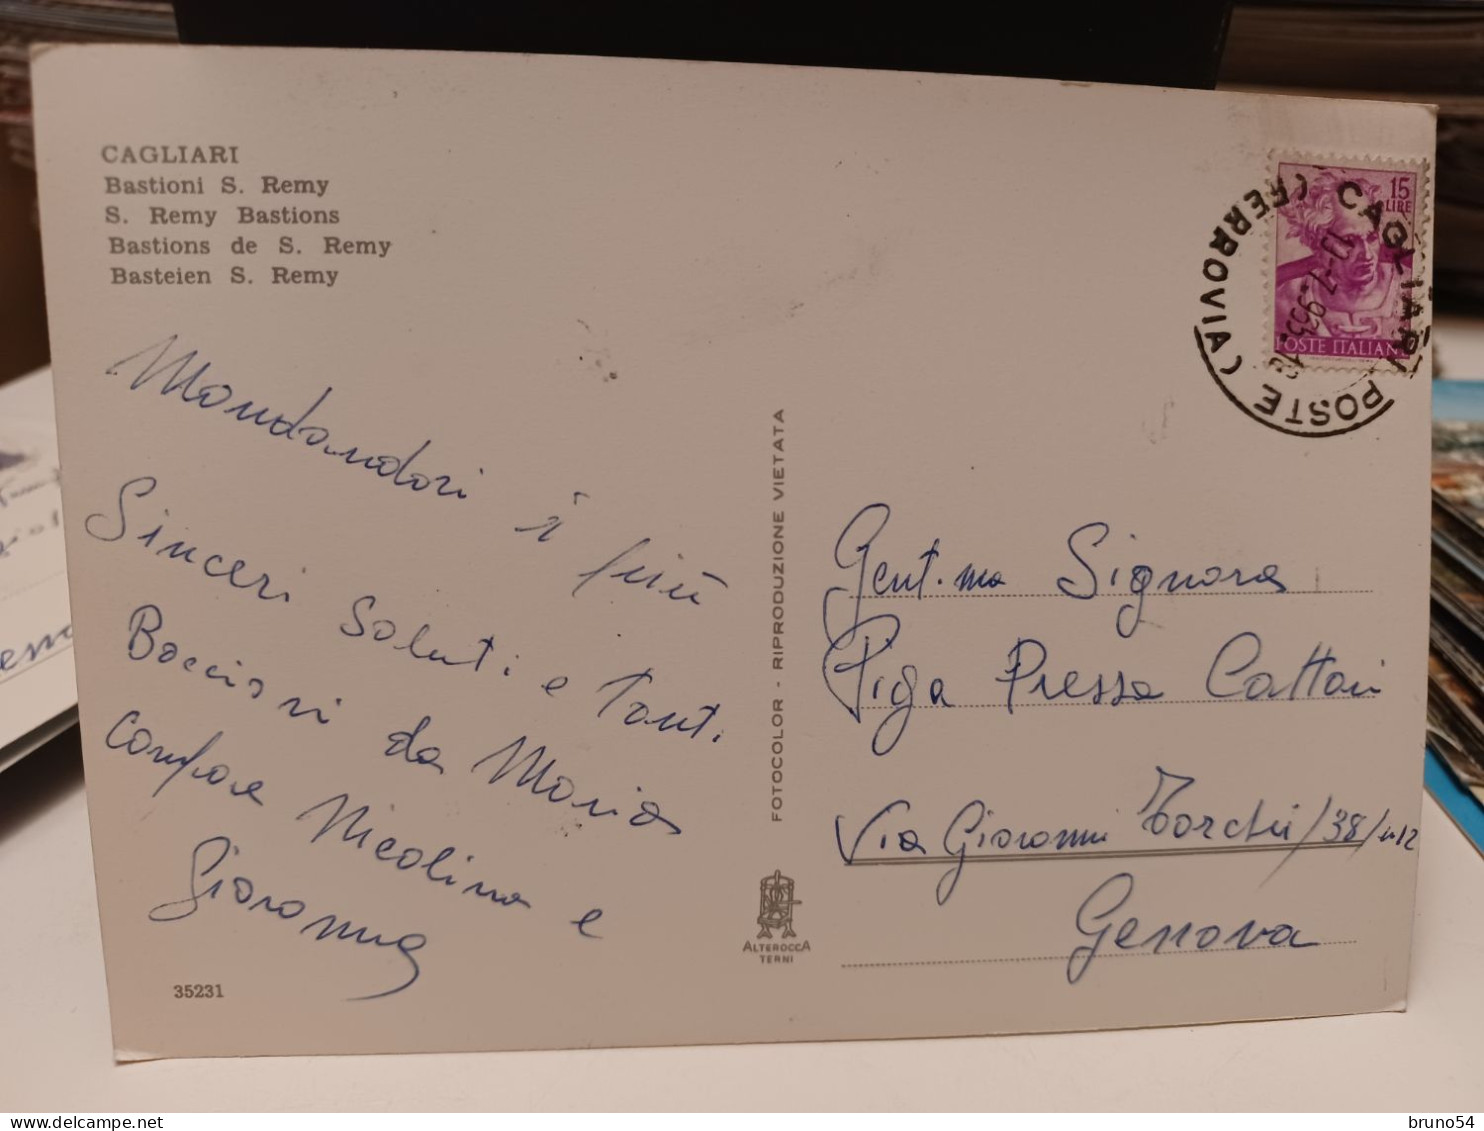 CAGLIARI
Bastioni S. Remy
S. Remy Bastions
Bastions de S. Remy
Basteien S. Remy
Mandandovi i più
Sinceri Saluti e tanti
Baccioni da Maria
compare Nicolina e
Giovanna
35231
FOTOCOLOR - RIPRODUZIONE VIETATA
ALTEROCCA
TERNI
15
LIRE
POSTE ITALIANE
CAGLIARI POSTE (FERROVIA)
Gent.ma Signora
Piga Presso Cattari
Via Giovanni Torchi/38/n12
Genova
bruno54